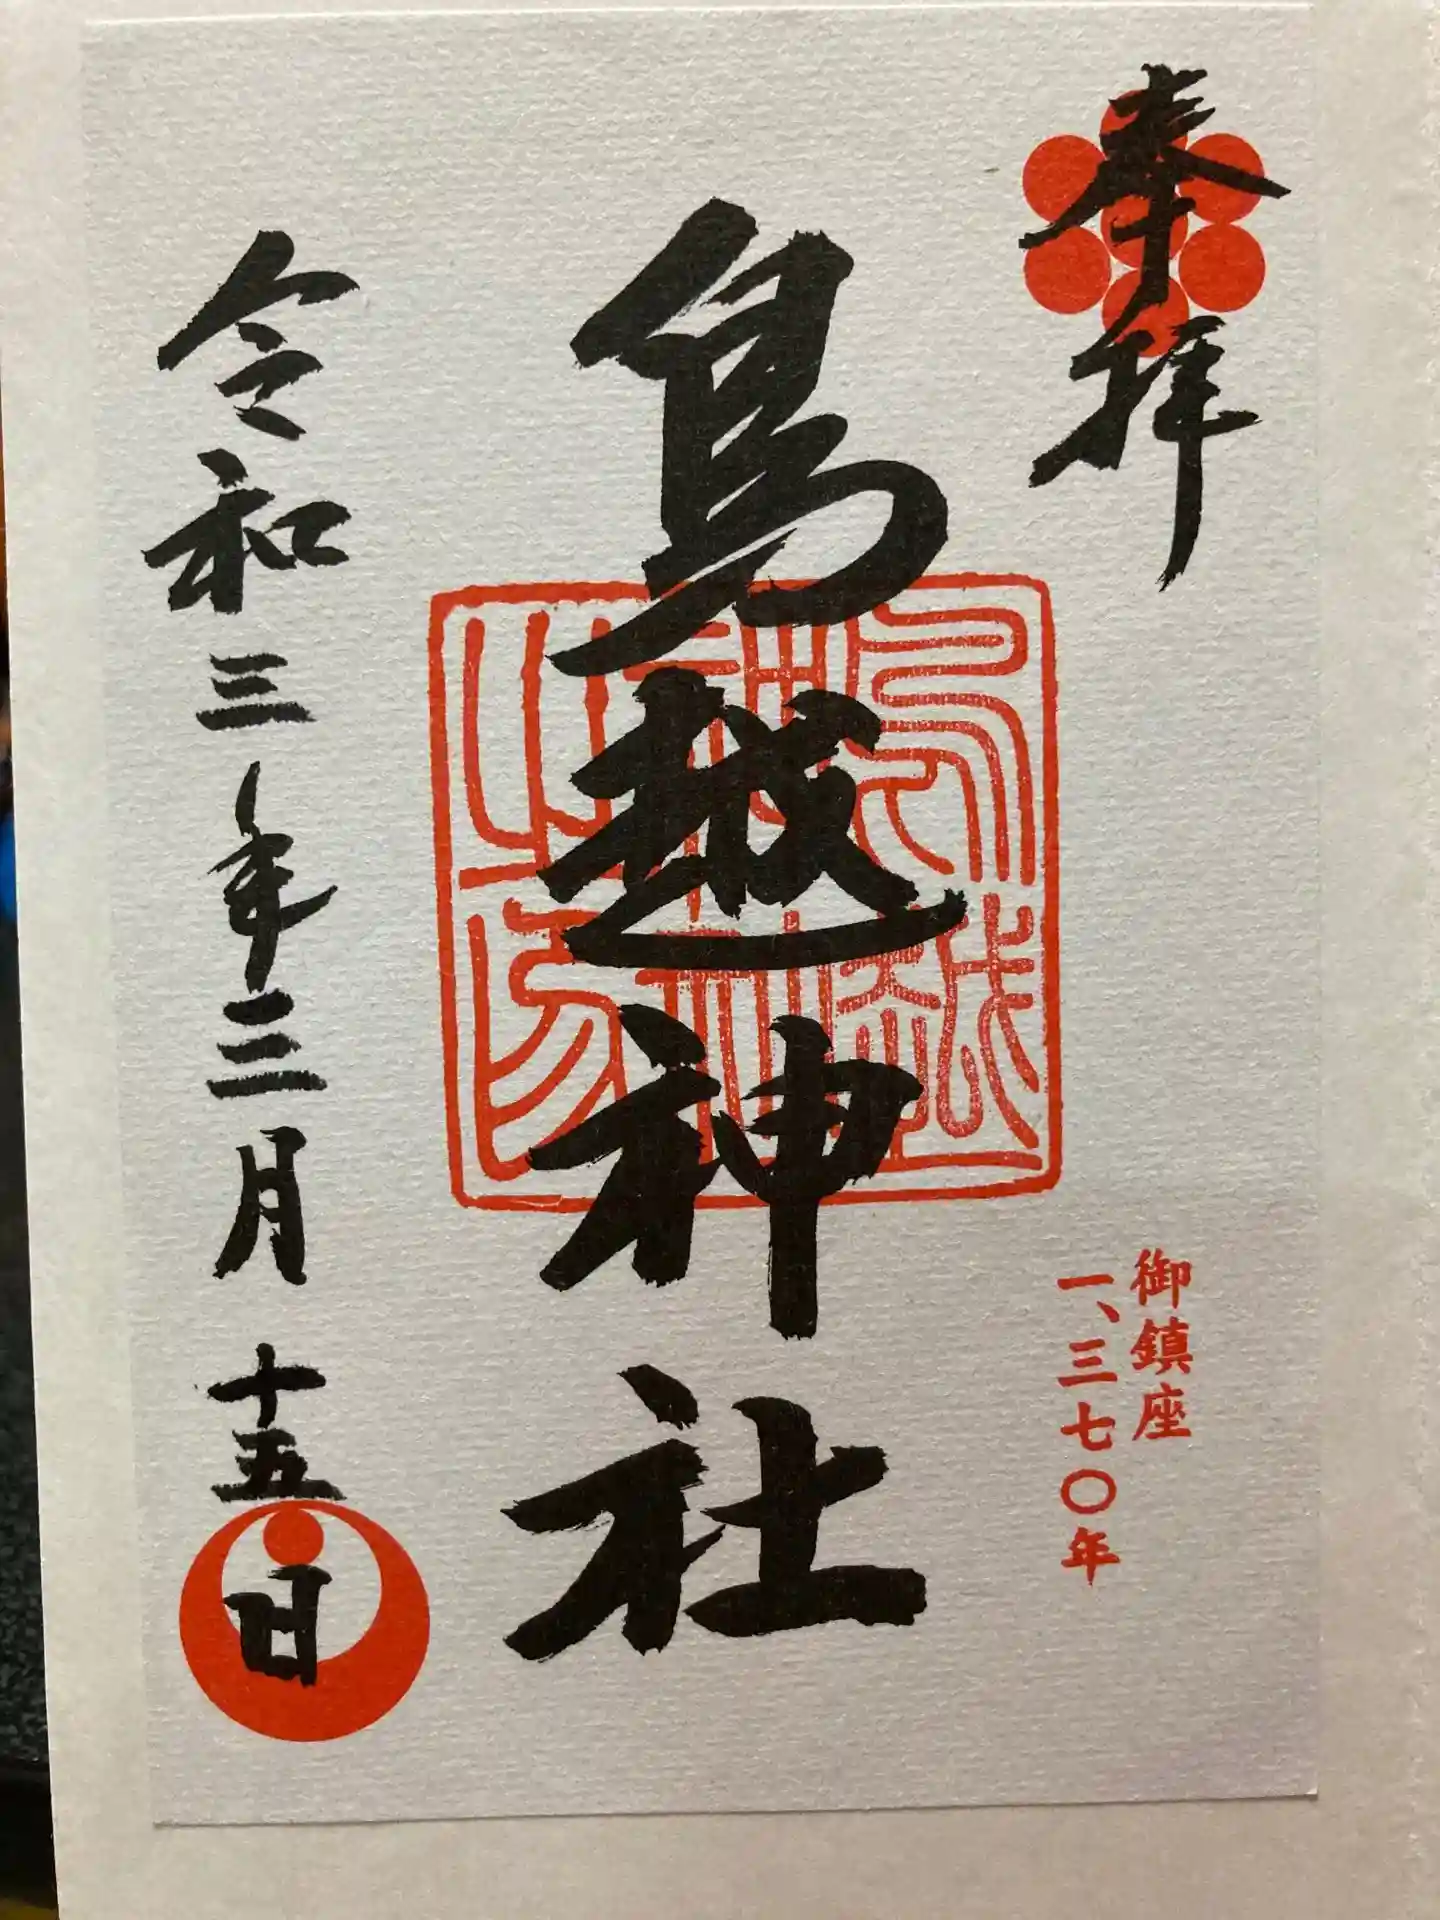 奉拝
御鎮座
一、三七〇年
鳥越神社
鳥越神社之印
令和三年三月十五日